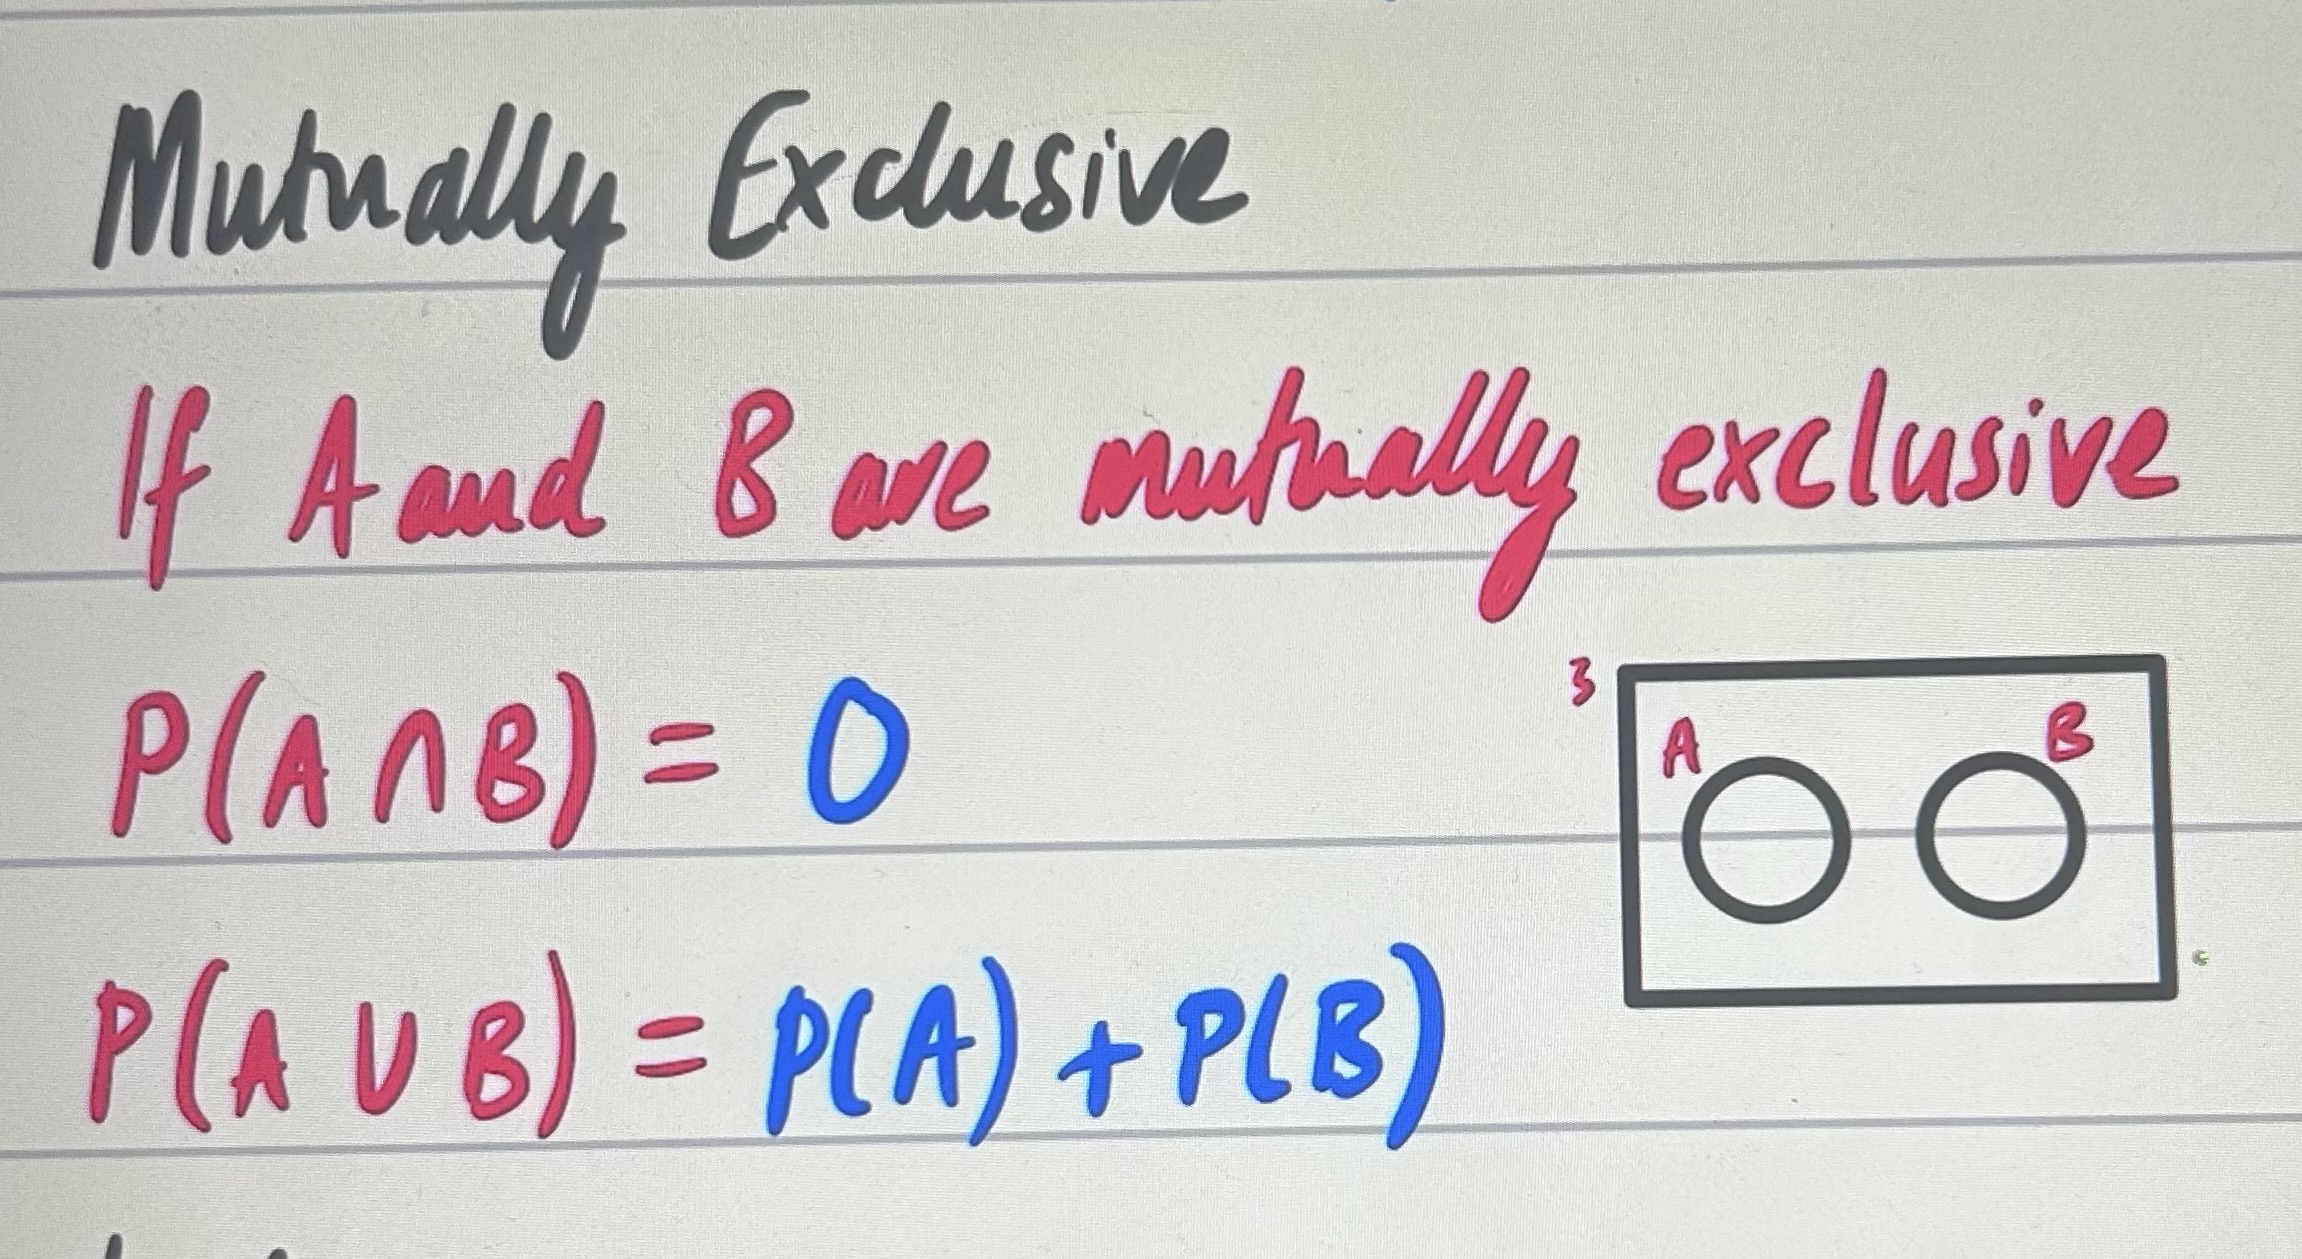 Mutually Exclusive
If A and B are mutually exclusive
P(A ∩ B) = 0
3
A B
P(A ∪ B) = P(A) + P(B)